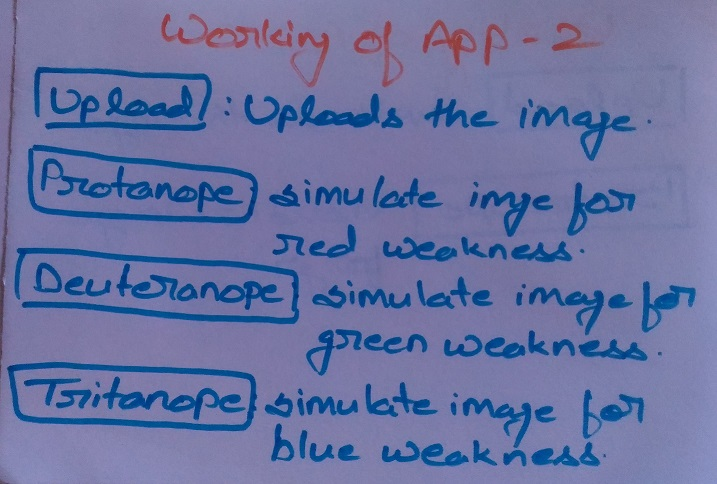 Working of App-2
Upload : Uploads the image.
Protanope simulate imge for
red weakness.
Deuteranope simulate image for
green weakness.
Tritanope simulate image for
blue weakness.